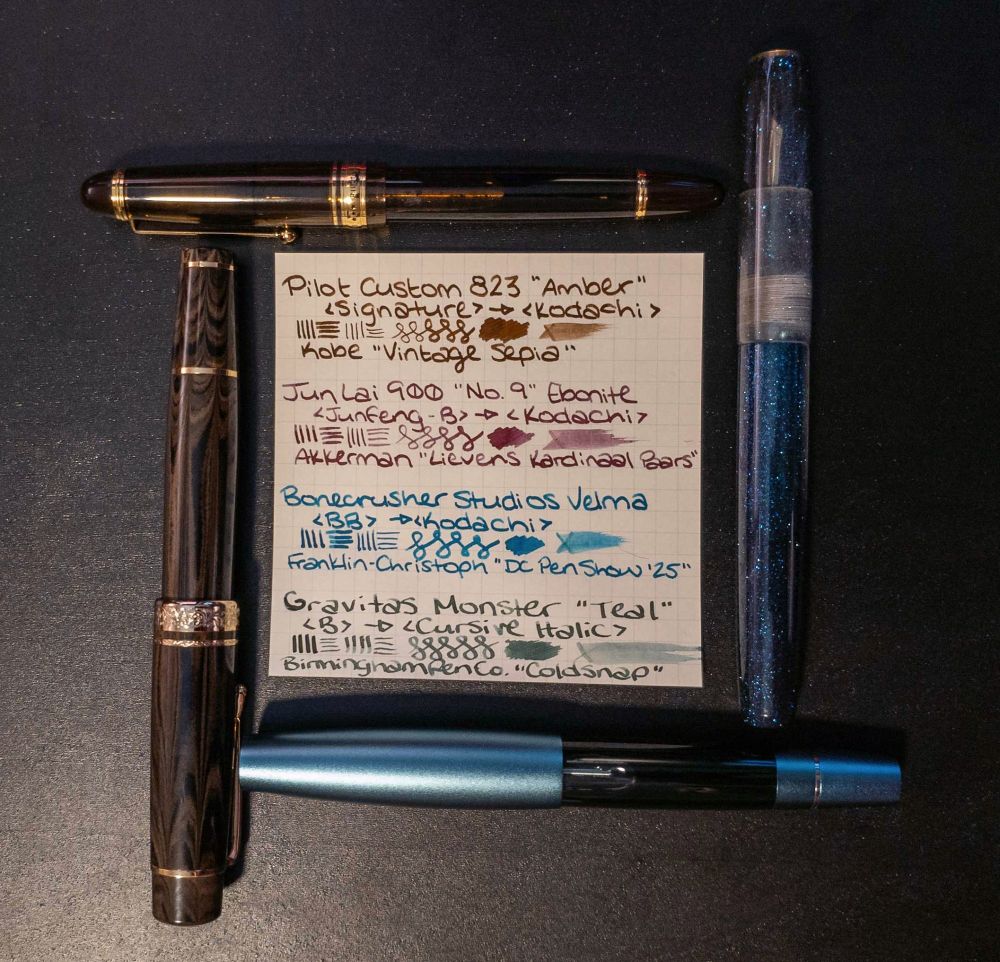 Pilot Custom 823 "Amber"
<Signature> → <Kodachi>
Kobe "Vintage Sepia"
Jun Lai 900 "No. 9" Ebonite
<Junfeng-B> → <Kodachi>
Akkerman "Lievens Kardinaal Paars"
Bonecrusher Studios Velma
<BB> → <Kodachi>
Franklin-Christoph "DC Pen Show '25"
Gravitas Monster "Teal"
<B> → <Cursive Italic>
Birmingham Pen Co. "Cold Snap"